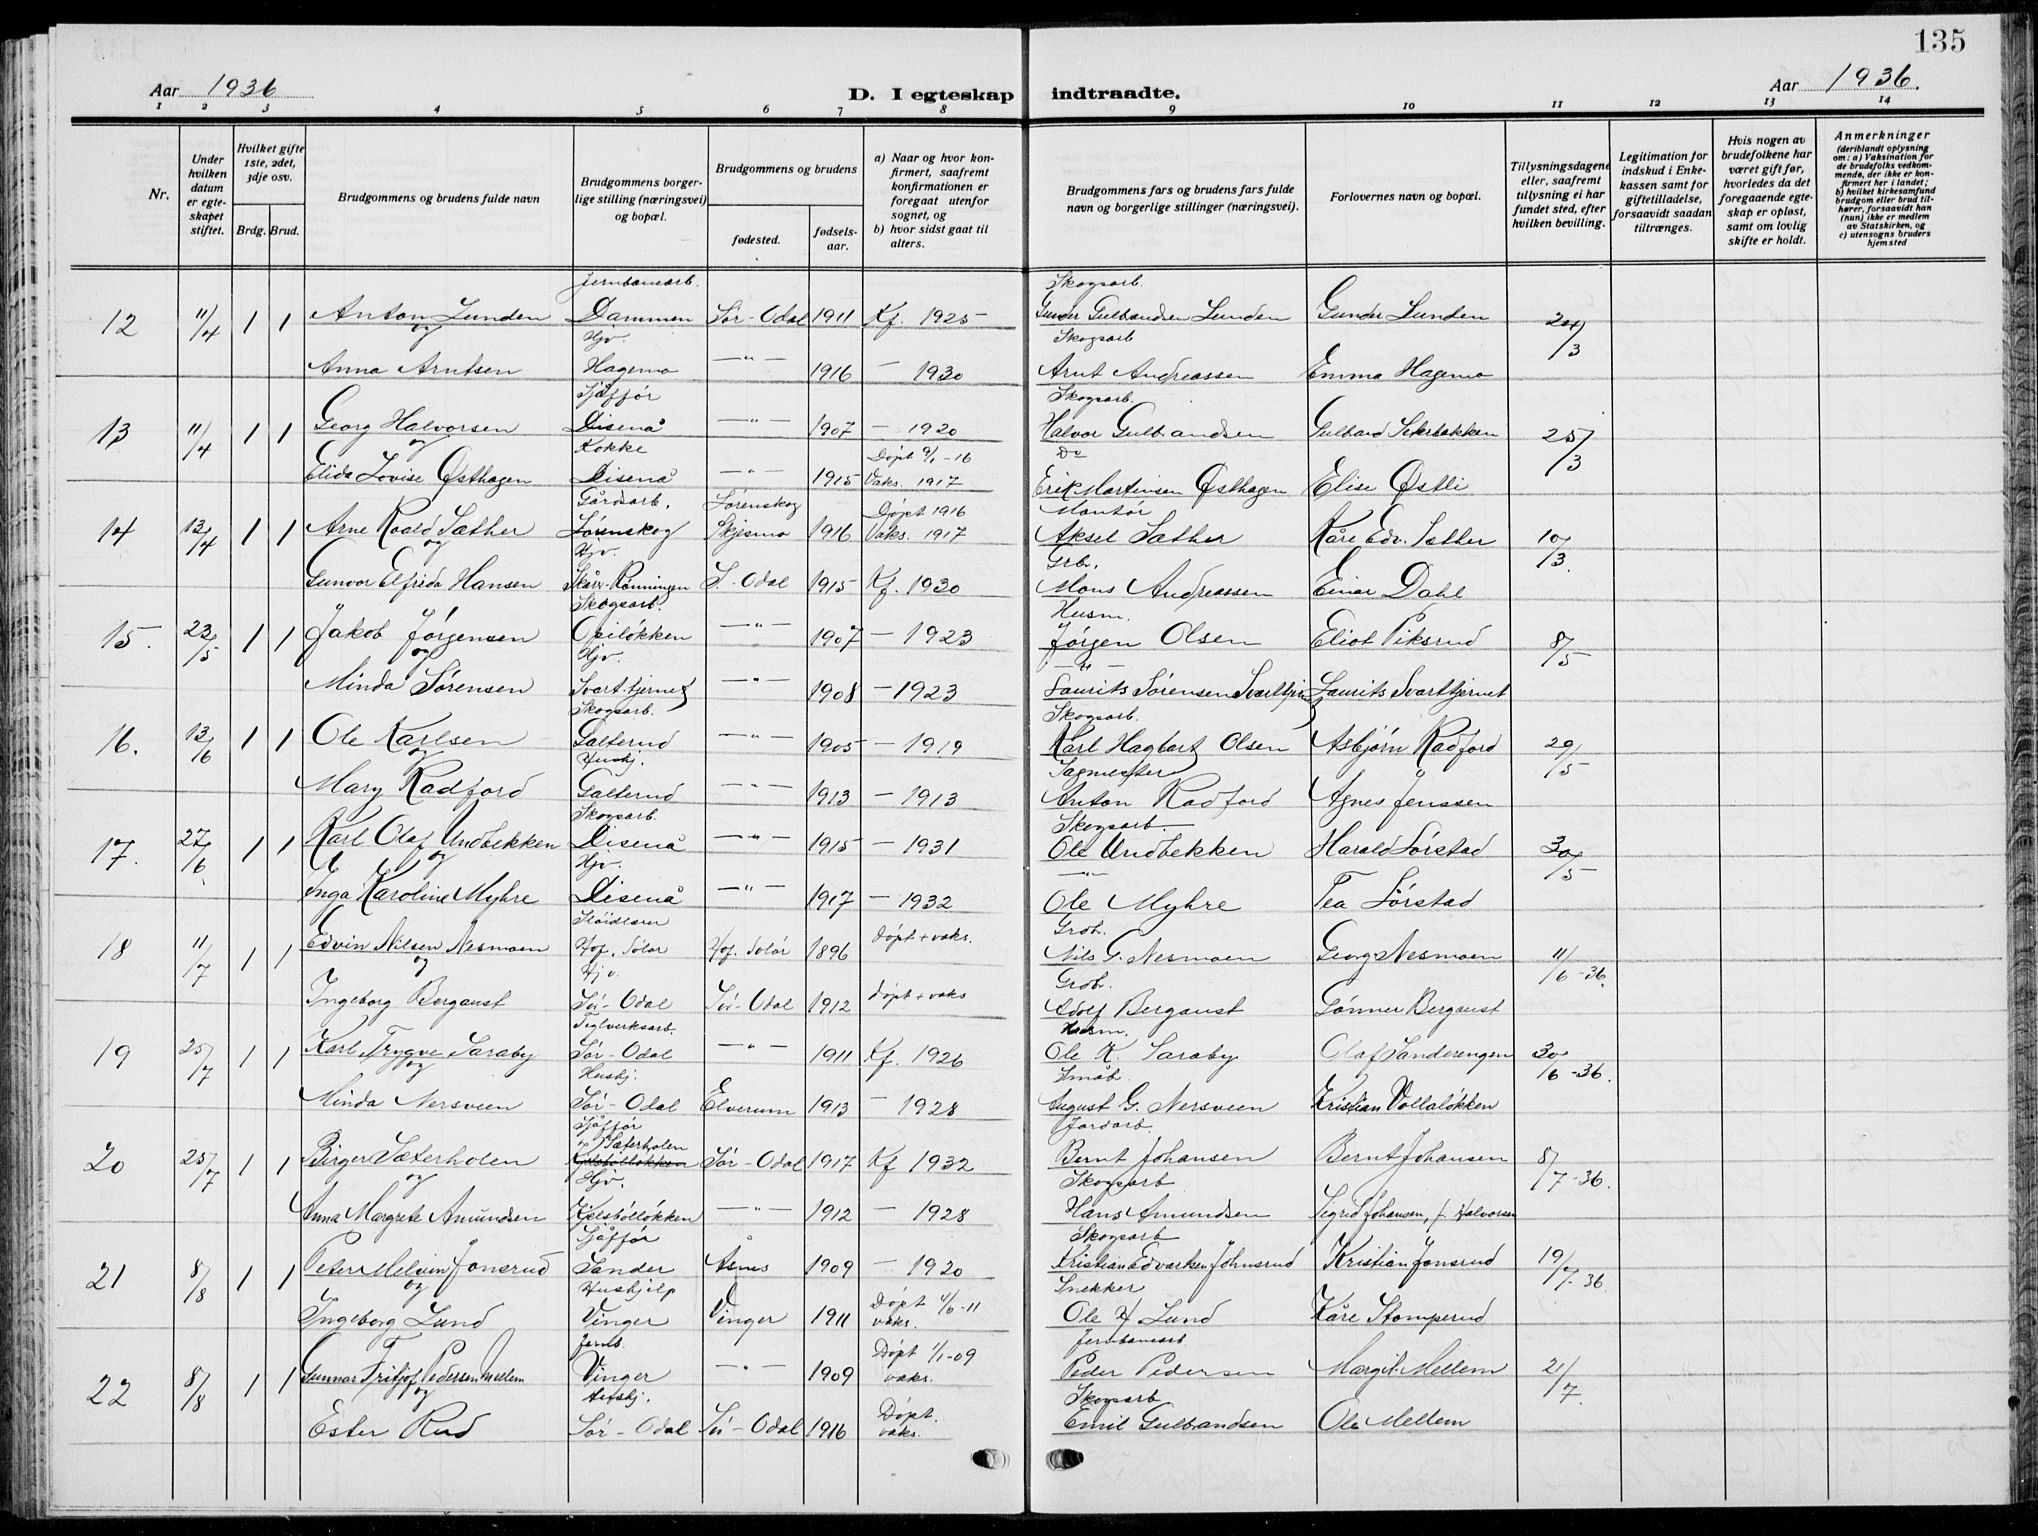 135
Aar 1936
D. I egteskap
indtraadte.
Aar 1936.
1 2 3 4 5 6 7 8 9 10 11 12 13 14
Nr.
Under hvilken datum er egteskapet stiftet.
Hvilket gifte 1ste, 2det, 3dje osv.
Brdg. Brud.
Brudgommens og brudens fulde navn
Brudgommens borgerlige stilling (næringsvei) og bopæl.
Brudgommens og brudens
fødested.
fødselsaar.
a) Naar og hvor konfirmert, saafremt konfirmationen er foregaat utenfor sognet, og
b) hvor sidst gaat til alters.
Brudgommens fars og brudens fars fulde navn og borgerlige stillinger (næringsvei).
Forlovernes navn og bopæl.
Tillysningsdagene eller, saafremt tillysning ei har fundet sted, efter hvilken bevilling.
Legitimation for indskud i Enkekassen samt for giftetilladelse, forsaavidt saadan tiltrænges.
Hvis nogen av brudefolkene har været gift før, hvorledes da det foregaaende egteskap er opløst, samt om lovlig skifte er holdt.
Anmerkninger (deriblandt oplysning om: a) Vaksination for de brudefolks vedkommende, der ikke er konfirmert her i landet; b) hvilket kirkesamfund brudgom eller brud tilhører, forsaavidt han (hun) ikke er medlem av Statskirken, og c) utensogns bruders hjemsted
Jernbanearb. Skogsarb.
12 11/4 1 1 Anton Lunden Dammen Sør-Odal 1911 Kf. 1925 Gunder Gulbandsen Lunden Gunder Lunden 24/3
og Hjv. Skogsarb
Anna Arntsen Hagemo —"— 1916 — 1930 Arnt Andreassen Emma Hagemo
Sjåffør Skogsarb.
13 11/4 1 1 Georg Halvorsen Disenå —"— 1907 — 1920 Halvor Gulbrandsen Gulband Seterbakken 25/3
og Kokke Døpt 9/1-16 Do
Elida Lovise Østhagen Disenå —"— 1915 Vaks. 1917 Erik Martinsen Østhagen Elise Østli
Gårdsarb. Lørenskog Døpt 1916 Montør
14 13/4 1 1 Arne Roald Sæther Lørenskog Skjesmo 1916 Vaks. 1917 Aksel Sæther Kåre Edv. Sæther 10/3.
og Hjv. Grb.
Gunvor Elfrida Hansen Skårv-Rønningen S. Odal 1915 Kf. 1930 Mons Andreassen Einar Dahl
Skogsarb. Husm.
15. 23/5 1 1 Jakob Jørgensen Opiløkken —"— 1907 — 1923 Jørgen Olsen Eliot Piksrud 8/5
og Hjv. —"—
Minda Sørensen Svarttjernet —"— 1908 — 1923 Laurits Sørensen Svarttjern Laurits Svarttjernet
Skogsarb. Skogsarb.
16. 13/6 1 1 Ole Karlsen Galterud —"— 1905 — 1919 Karl Hagbart Olsen Asbjørn Radford 29/5
og Hushj. Sagmester
Mary Radford Galterud —"— 1913 — 1913 Anton Radford Agnes Jenssen
Skogsarb. Skogsarb.
17. 27/6. 1 1 Karl Olaf Undbekken Disenå —"— 1915 — 1931 Ole Undbekken Harald Sørstad 30/5
og Hjv. —"—
Inga Karoline Myhre Disenå —"— 1917 — 1932 Ole Myhre Tea Sørstad
Sløidlærer Døpt + vaks. Grob.
18 11/7 1 1 Edvin Nilsen Nesmoen Hof, Solør Hof, Solør 1896 Nils G. Nesmoen Georg Nesmoen 11/6-36.
og Hjv. Grob.
Ingeborg Bergaust Sør-Odal Sør-Odal 1912 Døpt + vaks Adolf Bergaust Gønner Bergaust
Teglverksarb. Husm.
19 25/7 1 1 Karl Trygve Saraby Sør-Odal —"— 1911 Kf. 1926 Ole K. Saraby Olaf Sanderengen 30/6-36.
og Hushj. Småb.
Minda Nersveen Sør-Odal Elverum 1913 — 1928 August G. Nersveen Kristian Vollaløkken
Sjåffør Jordarb.
20 25/7 1 1 Birger Sæterholen Sæterholen Sør-Odal 1917 Kf 1932 Bernt Johansen Bernt Johansen 8/7-36.
og Hjv. Skogsarb
Anna Margrete Amundsen Kjelsbølløkken —"— 1912 — 1928 Hans Amundsen Sigrid Johansen, f. Halvorsen
Sjåffør Skogsarb
21 8/8 1 1 Peter Melvin Jonsrud Sander Åsnes 1909 — 1920 Kristian Edvartsen Johnsrud Kristian Jonsrud 19/7-36
og Hushjelp Døpt 4/6-11 Snekker
Ingeborg Lund Vinger Vinger 1911 vaks. Ole H Lund Kåre Stomperud
Jernb. Døpt 1/1-09 Jernbanearb
22 8/8 1 1 Gunnar Fritjof Pedersen Mellem Vinger —"— 1909 vaks. Peder Pedersen Margit Mellem 21/7.
og Hushj. Skogsarb
Ester Rud Sør-Odal Sør-Odal 1916 Døpt. vaks. Emil Gulbrandsen Ole Mellem